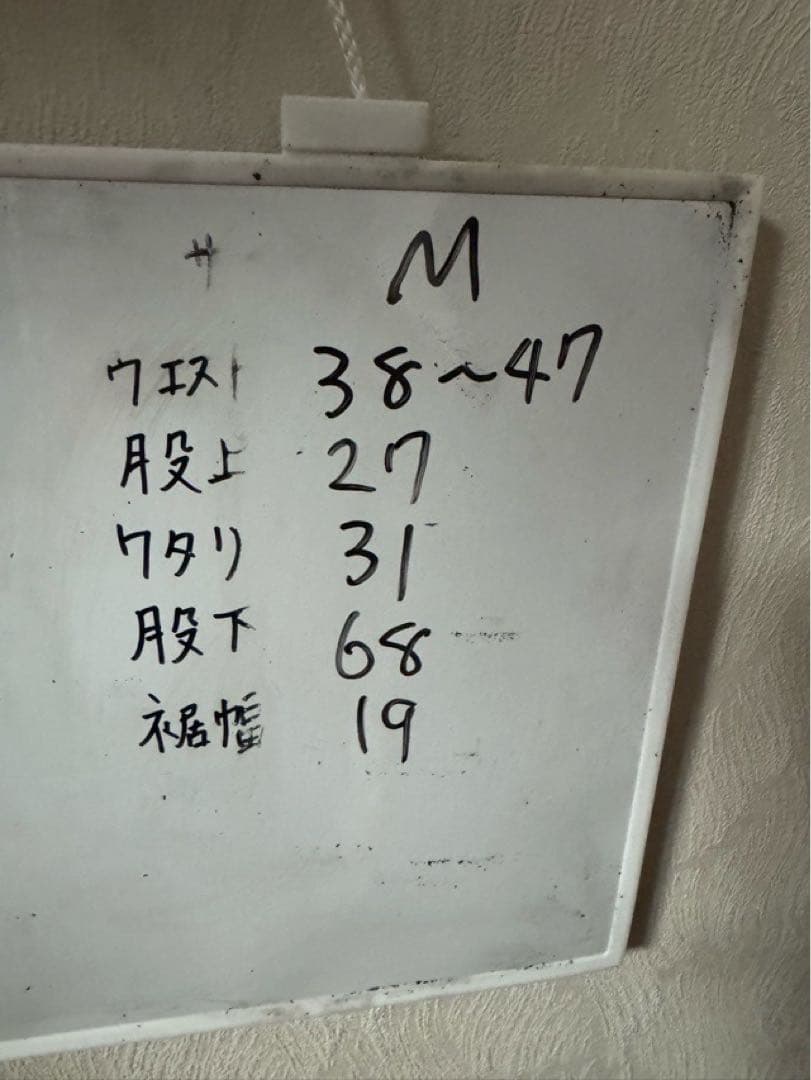 サ M
ウエスト 38~47
股上 27
ワタリ 31
股下 68
裾幅 19